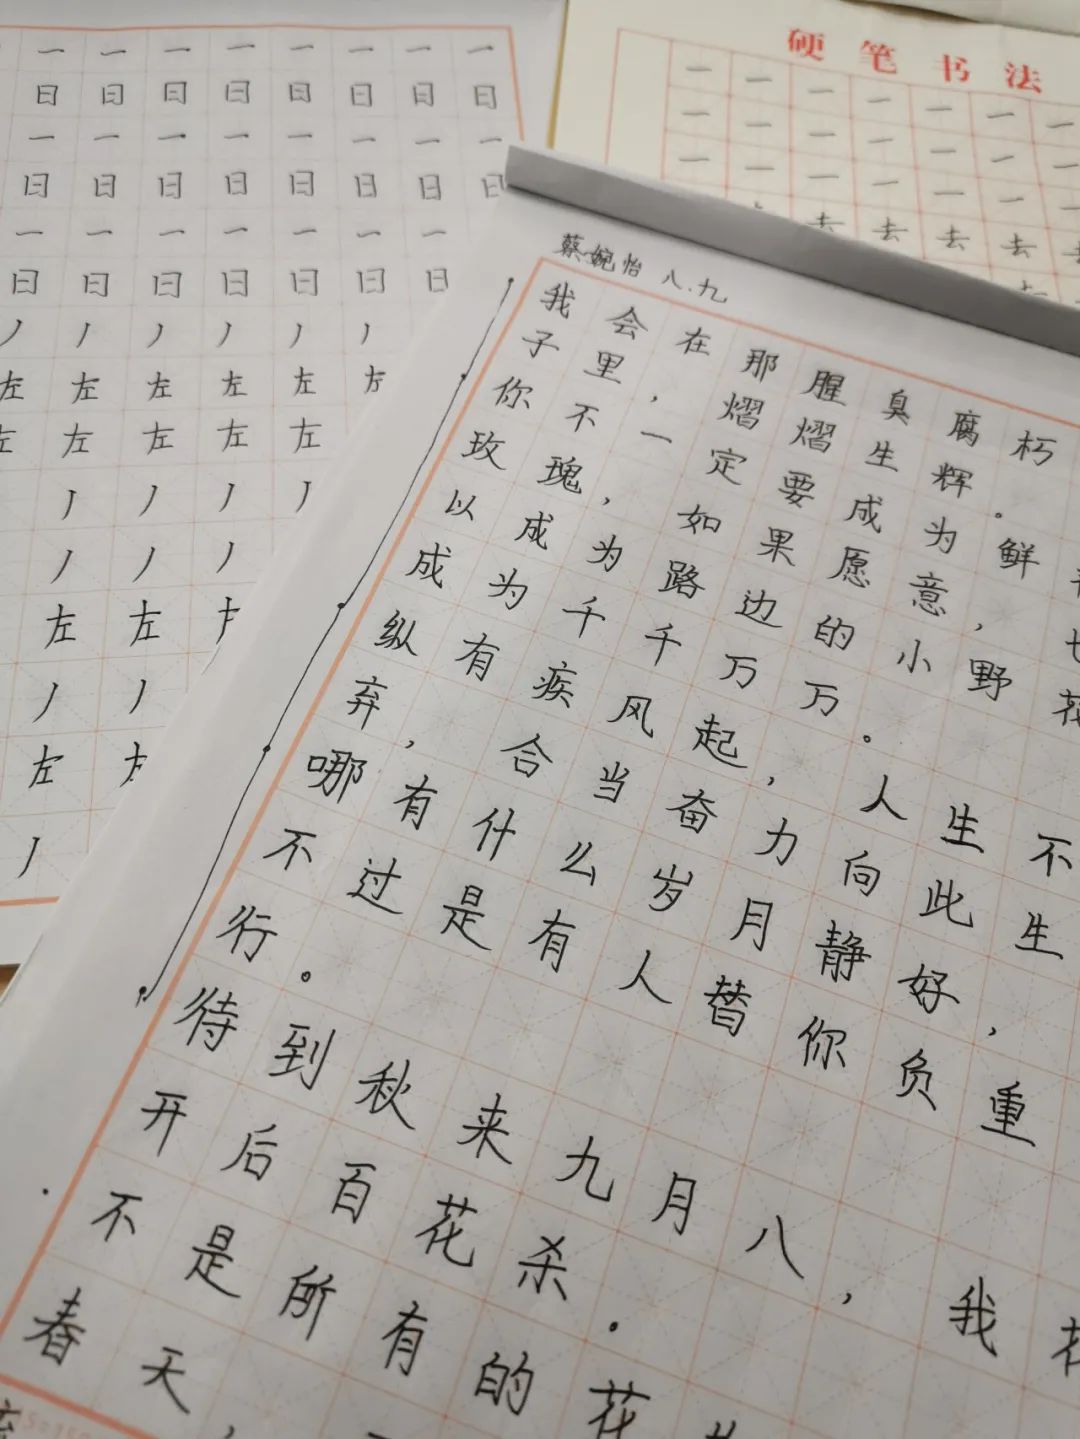 一 一 一 一 一 一 一 一
日 日 日 日 日 日 日 日
一 一 一 一 一 一 一 一
日 日 日 日 日 日 日 日
一 一 一 一 一 一 一
日 日 日 日 日 日 日
丿 丿 丿 丿 丿 丿
左 左 左 左 左
左 左 左 左 左
丿 丿 丿 丿
丿 丿 丿
左 左
丿 丿
左
丿
硬笔书法
一 一 一 一 一 一
一 一 一 一 一 一
一 一 一 一 一
去 去 去 去 去
蔡婉怡 八.九
我会在那腥臭腐朽
子里,熠熠生辉。
你不一定要成为鲜
玫瑰,如果愿意,也
以成为路边的小野花
成为千千万万。
纵有疾风起,人生不
弃,合当奋力向此生
哪有什么岁月静好,
不过是有人替你负重
行。
待到秋来九月八,我花
开后百花杀.
不是所有的花
春天,